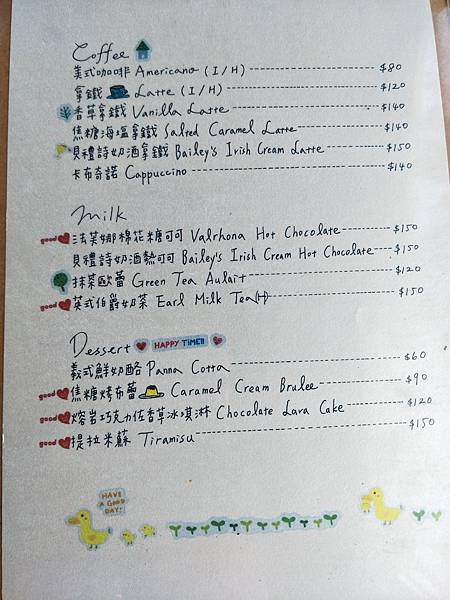 Coffee
美式咖啡 Americano (I/H) $80
拿鐵 Latte (I/H) $120
香草拿鐵 Vanilla Latte $140
焦糖海塩拿鐵 Salted Caramel Latte $140
貝禮詩奶酒拿鐵 Bailey's Irish Cream Latte $150
卡布奇諾 Cappuccino $140
Milk
good 法芙娜棉花糖可可 Valrhona Hot Chocolate $150
貝禮詩奶酒熱可可 Bailey's Irish Cream Hot Chocolate $150
抹茶歐蕾 Green Tea Aulait $120
good 英式伯爵奶茶 Earl Milk Tea(H) $150
Dessert HAPPY TIME!!
義式鮮奶酪 Panna Cotta $60
good 焦糖烤布蕾 Caramel Cream Brulee $90
good 熔岩巧克力佐香草冰淇淋 Chocolate Lava Cake $120
good 提拉米蘇 Tiramisu $150
HAVE A GOOD DAY!